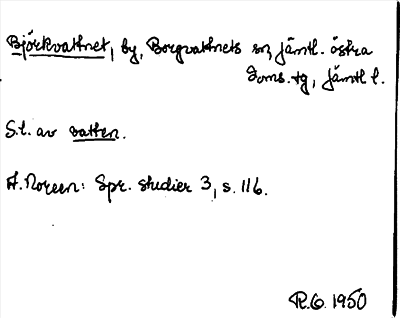 Björkvattnet, by, Borgvattnets sn, Jämtl. östra
doms. tg, Jämtl l.
S.l. av vatten.
A. Noreen: Spr. studier 3, s. 116.
R.G. 1950